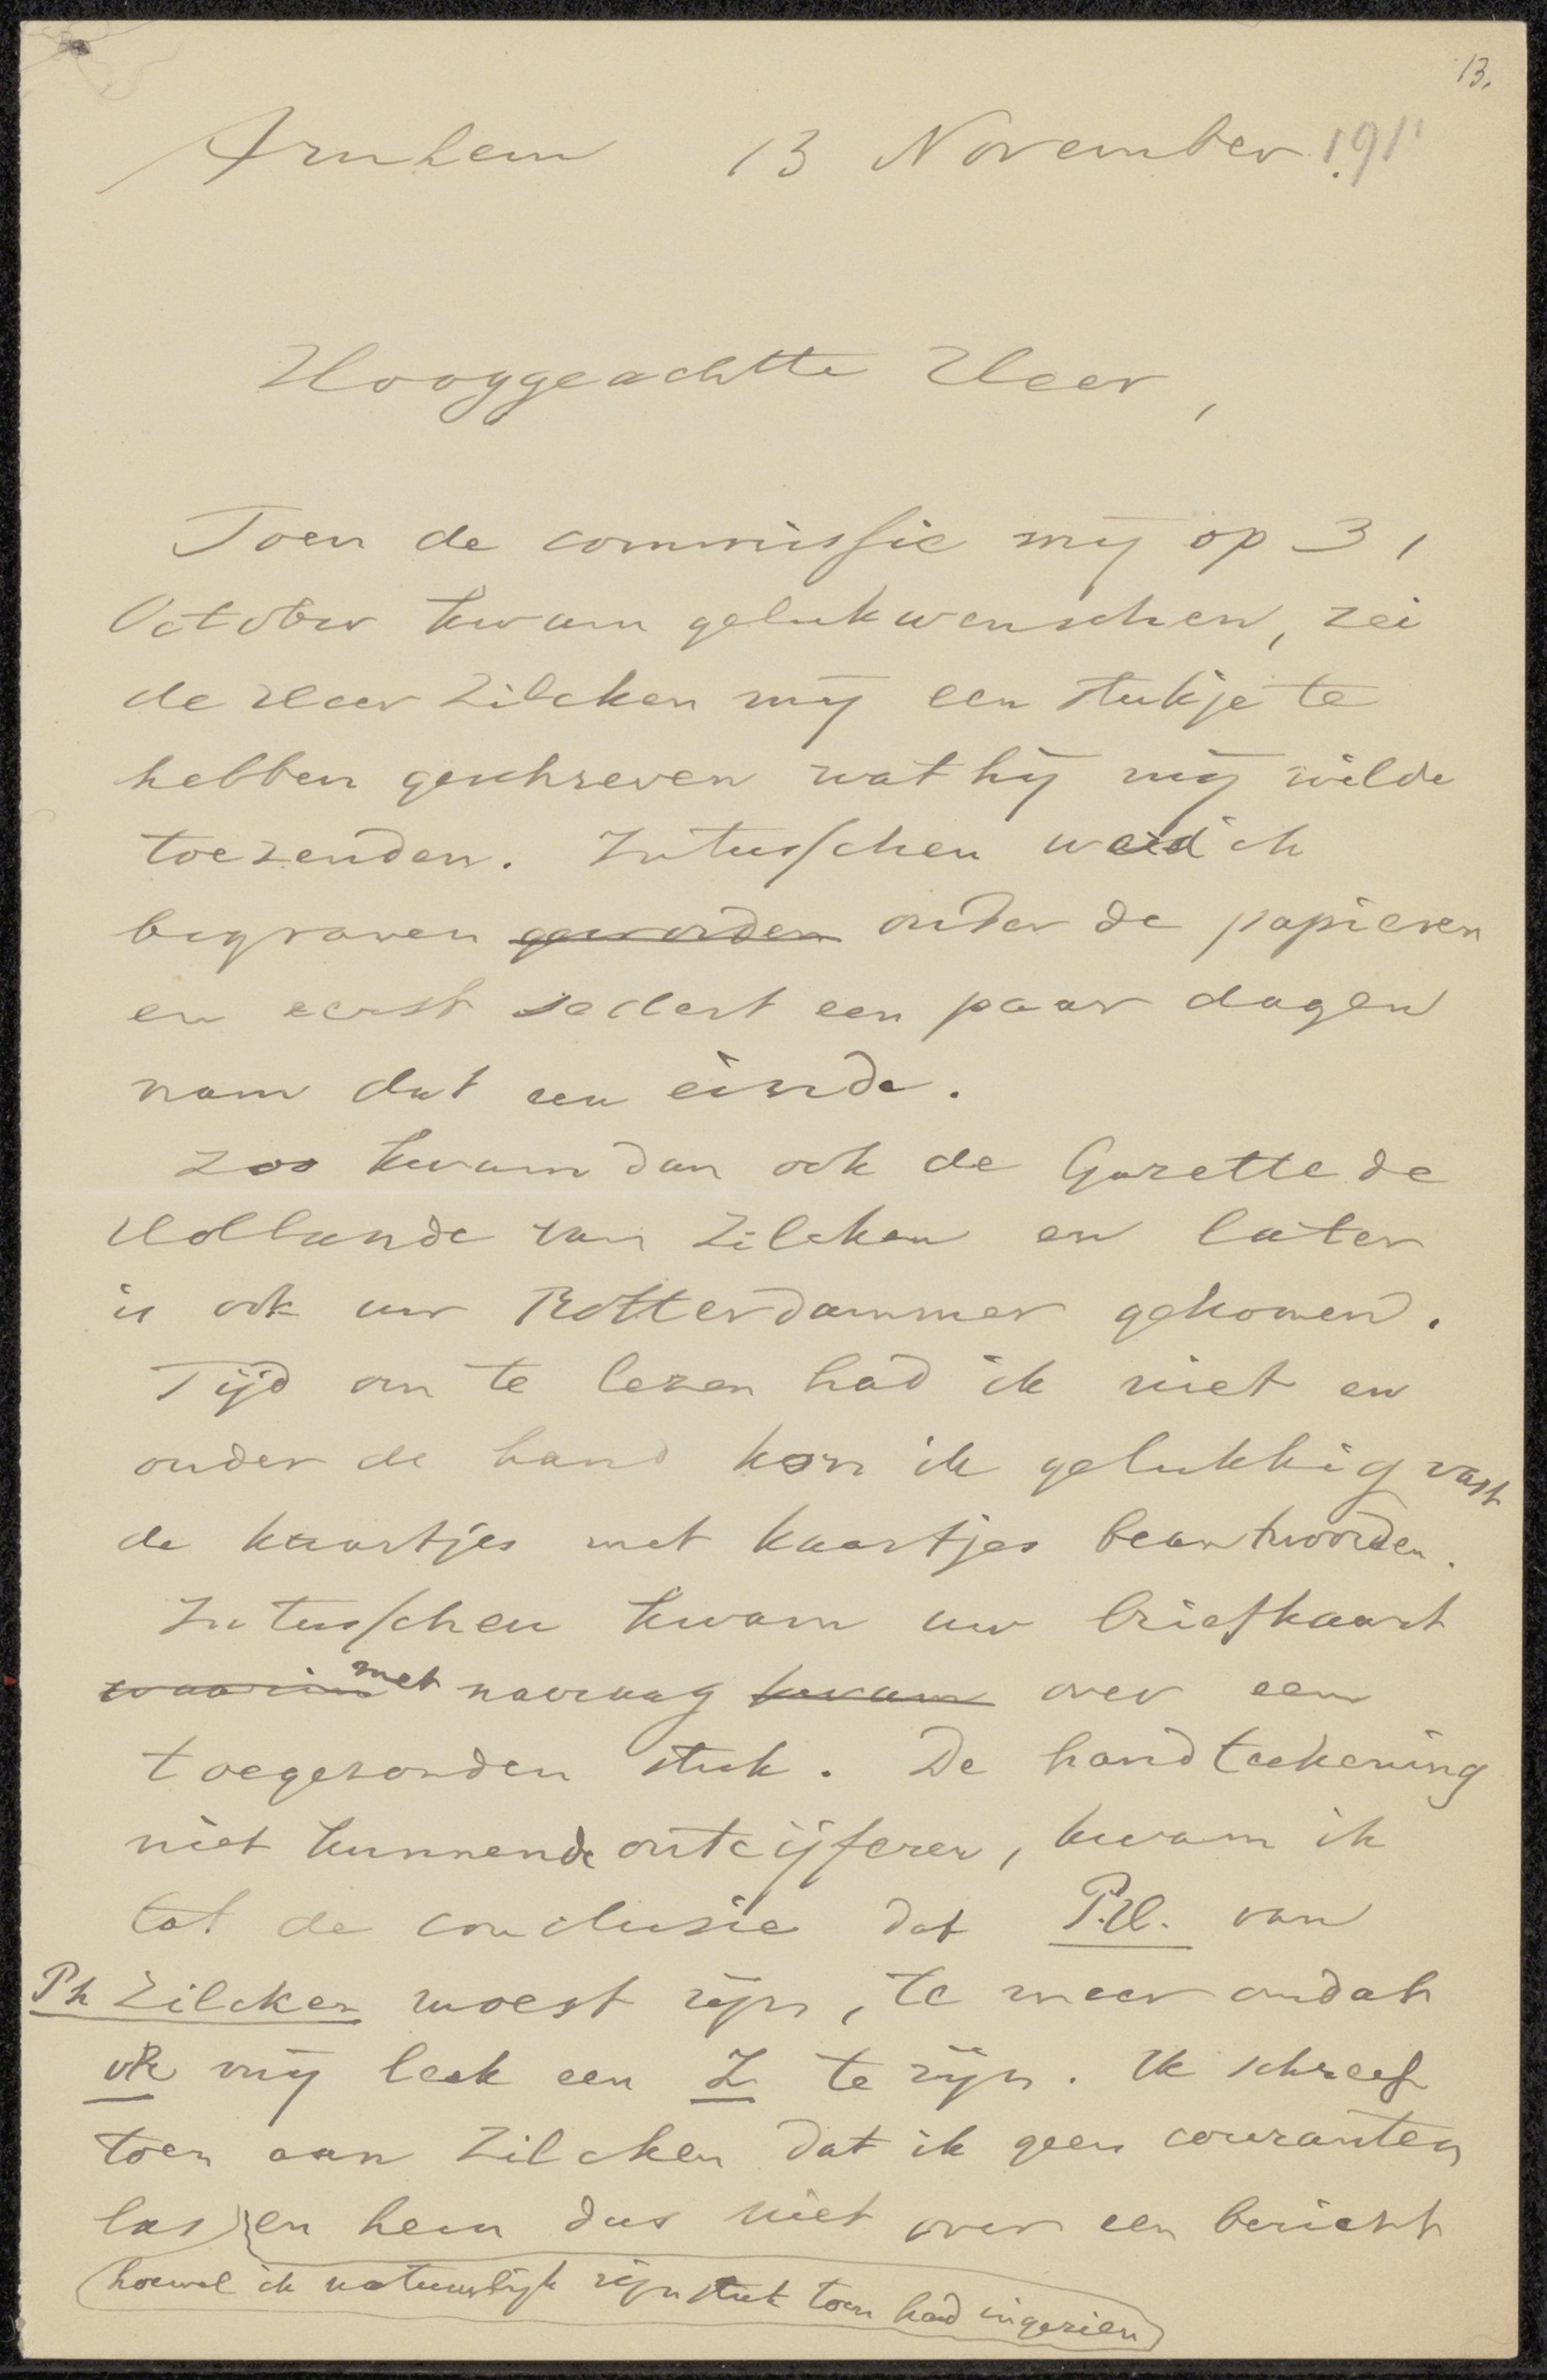 13.
Arnhem 13 November 191
Hooggeachtte Heer,
Toen de commissie mij op 31
October kwam gelukwenschen, zei
de Heer Zilcken mij een stukje te
hebben geschreven wat hij mij wilde
toezenden. Intusschen werd ik
begraven geworden onder de papieren
en eerst sedert een paar dagen
nam dat een einde.
Zoo kwam dan ook de Gazette de
Hollande van Zilcken en later
is ook uw Rotterdammer gekomen.
Tijd om te lezen had ik niet en
onder de hand kon ik gelukkig vast
de kaartjes met kaartjes beantwoorden.
Intusschen kwam uw briefkaart
waarin met navraag kwam over een
toegezonden stuk. De handteekening
niet kunnende ontcijferen, kwam ik
tot de conclusie dat P.H. van
Ph Zilcken moest zijn, te meer omdat
vR mij leek een Z te zijn. Ik schreef
toen aan Zilcken dat ik geen couranten
las en hem dus niet over een bericht
hoewel ik natuurlijk zijn stuk toen had ingezien